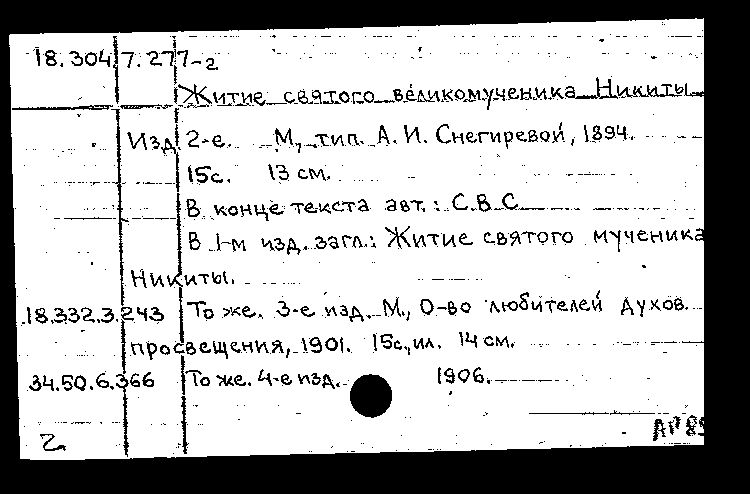 18.304.7.277-2
Житие святого великомученика Никиты
Изд 2-е. М., тип. А. И. Снегиревой, 1894.
15с. 13 см.
В конце текста авт.: С.В.С.
В 1-м изд. загл.: Житие святого мученика
Никиты.
18.332.3.243 То же. 3-е изд. М., О-во любителей духов.
просвещения, 1901. 15с., ил. 14 см.
34.50.6.366 То же. 4-е изд. 1906.